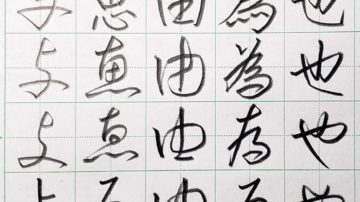 也也也
為為為
由由由
恵恵恵
与与与